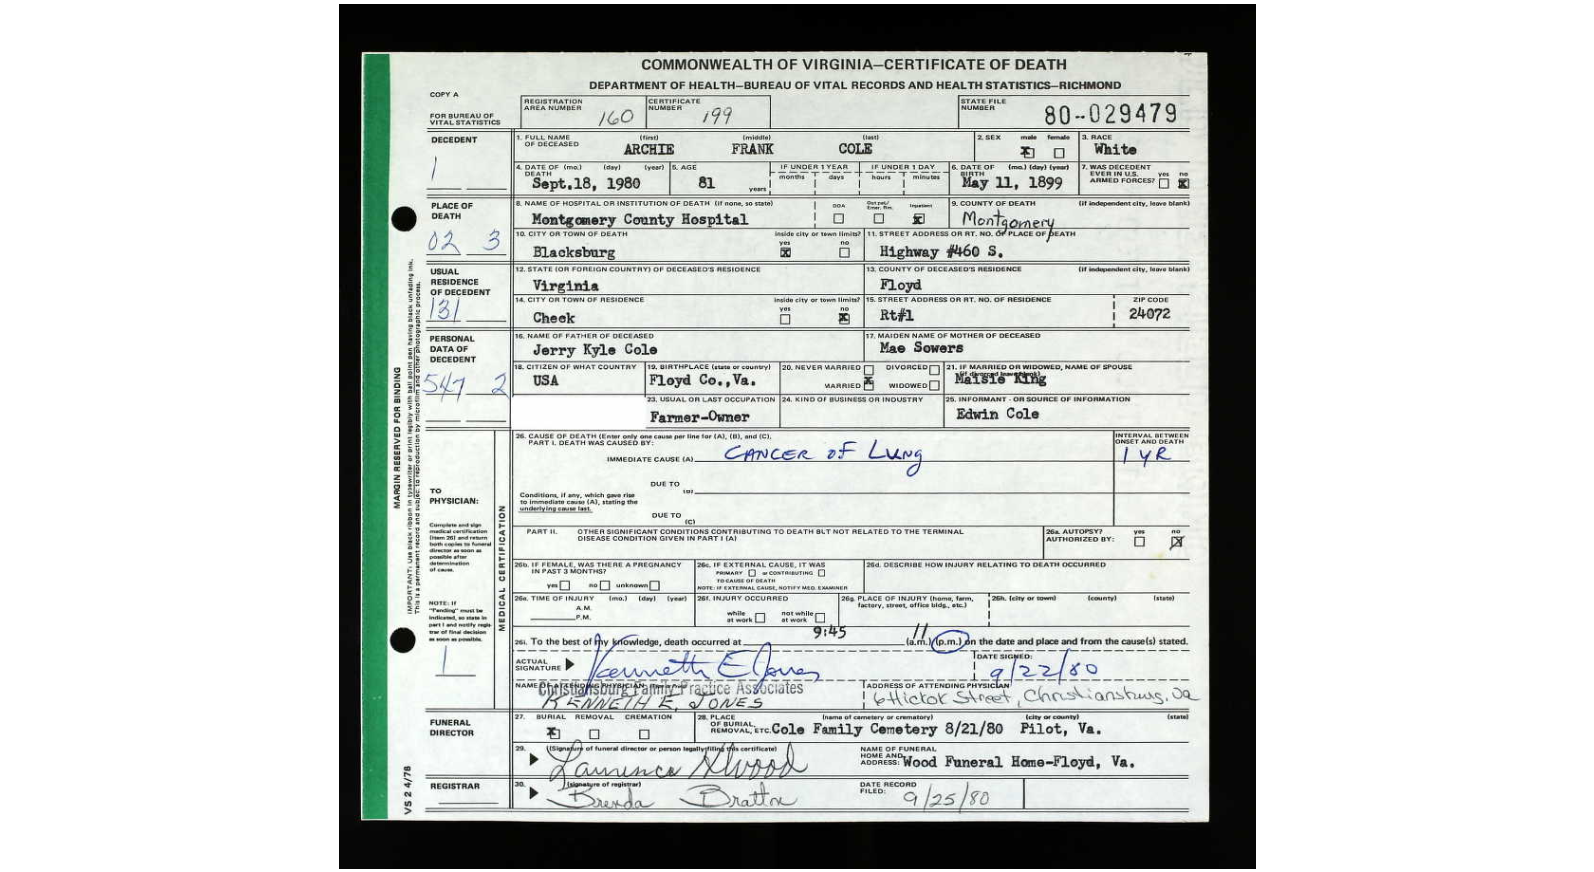 COMMONWEALTH OF VIRGINIA—CERTIFICATE OF DEATH
DEPARTMENT OF HEALTH—BUREAU OF VITAL RECORDS AND HEALTH STATISTICS—RICHMOND
COPY A
FOR BUREAU OF VITAL STATISTICS
REGISTRATION AREA NUMBER 160 CERTIFICATE NUMBER 199 STATE FILE NUMBER 80-029479
DECEDENT
1
1. FULL NAME OF DECEASED (first) ARCHIE (middle) FRANK (last) COLE 2. SEX male X female 3. RACE White
4. DATE OF DEATH (mo.) (day) (year) Sept.18, 1980 5. AGE 81 years IF UNDER 1 YEAR months days IF UNDER 1 DAY hours minutes 6. DATE OF BIRTH (mo.) (day) (year) May 11, 1899 7. WAS DECEDENT EVER IN U.S. ARMED FORCES? yes no X
PLACE OF DEATH
02 3
8. NAME OF HOSPITAL OR INSTITUTION OF DEATH (if none, so state) Montgomery County Hospital DOA Out pat/ Emer. Rm. Inpatient X 9. COUNTY OF DEATH (if independent city, leave blank) Montgomery
10. CITY OR TOWN OF DEATH Blacksburg inside city or town limits? yes X no 11. STREET ADDRESS OR RT. NO. OF PLACE OF DEATH Highway #460 S.
USUAL RESIDENCE OF DECEDENT
131
12. STATE (OR FOREIGN COUNTRY) OF DECEASED'S RESIDENCE Virginia 13. COUNTY OF DECEASED'S RESIDENCE (if independent city, leave blank) Floyd
14. CITY OR TOWN OF RESIDENCE Check inside city or town limits? yes no X 15. STREET ADDRESS OR RT. NO. OF RESIDENCE Rt#1 ZIP CODE 24072
PERSONAL DATA OF DECEDENT
547 2
16. NAME OF FATHER OF DECEASED Jerry Kyle Cole 17. MAIDEN NAME OF MOTHER OF DECEASED Mae Sowers
18. CITIZEN OF WHAT COUNTRY USA 19. BIRTHPLACE (state or country) Floyd Co.,Va. 20. NEVER MARRIED DIVORCED MARRIED X WIDOWED 21. IF MARRIED OR WIDOWED, NAME OF SPOUSE (if divorced leave blank) Maisie King
23. USUAL OR LAST OCCUPATION Farmer-Owner 24. KIND OF BUSINESS OR INDUSTRY 25. INFORMANT - OR SOURCE OF INFORMATION Edwin Cole
MARGIN RESERVED FOR BINDING
TO PHYSICIAN:
Complete and sign medical certification (item 26) and return both copies to funeral director as soon as possible after determination of cause.
NOTE: If "Pending" must be indicated, so state in part I and notify registrar of final decision as soon as possible.
1
MEDICAL CERTIFICATION
26. CAUSE OF DEATH (Enter only one cause per line for (A), (B), and (C).
PART I. DEATH WAS CAUSED BY: INTERVAL BETWEEN ONSET AND DEATH
IMMEDIATE CAUSE (A) CANCER OF LUNG 1 YR
DUE TO (B)
Conditions, if any, which gave rise to immediate cause (A), stating the underlying cause last.
DUE TO (C)
PART II. OTHER SIGNIFICANT CONDITIONS CONTRIBUTING TO DEATH BUT NOT RELATED TO THE TERMINAL DISEASE CONDITION GIVEN IN PART I (A) 26a. AUTOPSY? AUTHORIZED BY: yes no X
26b. IF FEMALE, WAS THERE A PREGNANCY IN PAST 3 MONTHS? yes no unknown 26c. IF EXTERNAL CAUSE, IT WAS PRIMARY or CONTRIBUTING TO CAUSE OF DEATH NOTE: IF EXTERNAL CAUSE, NOTIFY MED. EXAMINER 26d. DESCRIBE HOW INJURY RELATING TO DEATH OCCURRED
26e. TIME OF INJURY (mo.) (day) (year) A.M. P.M. 26f. INJURY OCCURRED while at work not while at work 26g. PLACE OF INJURY (home, farm, factory, street, office bldg., etc.) 26h. (city or town) (county) (state)
26i. To the best of my knowledge, death occurred at 9:45 (a.m.) (p.m.) on the date and place and from the cause(s) stated.
ACTUAL SIGNATURE Kenneth E Jones DATE SIGNED: 9/22/80
NAME OF ATTENDING PHYSICIAN Christiansburg Family Practice Associates KENNETH E. JONES ADDRESS OF ATTENDING PHYSICIAN 6 Hickok Street, Christiansburg, Va
FUNERAL DIRECTOR
27. BURIAL X REMOVAL CREMATION 28. PLACE OF BURIAL, REMOVAL, ETC. (name of cemetery or crematory) (city or county) (state) Cole Family Cemetery 8/21/80 Pilot, Va.
29. (Signature of funeral director or person legally filing this certificate) NAME OF FUNERAL HOME AND ADDRESS: Wood Funeral Home-Floyd, Va.
REGISTRAR
30. (signature of registrar) Brenda Bratton DATE RECORD FILED: 9/25/80
VS 2 4/78